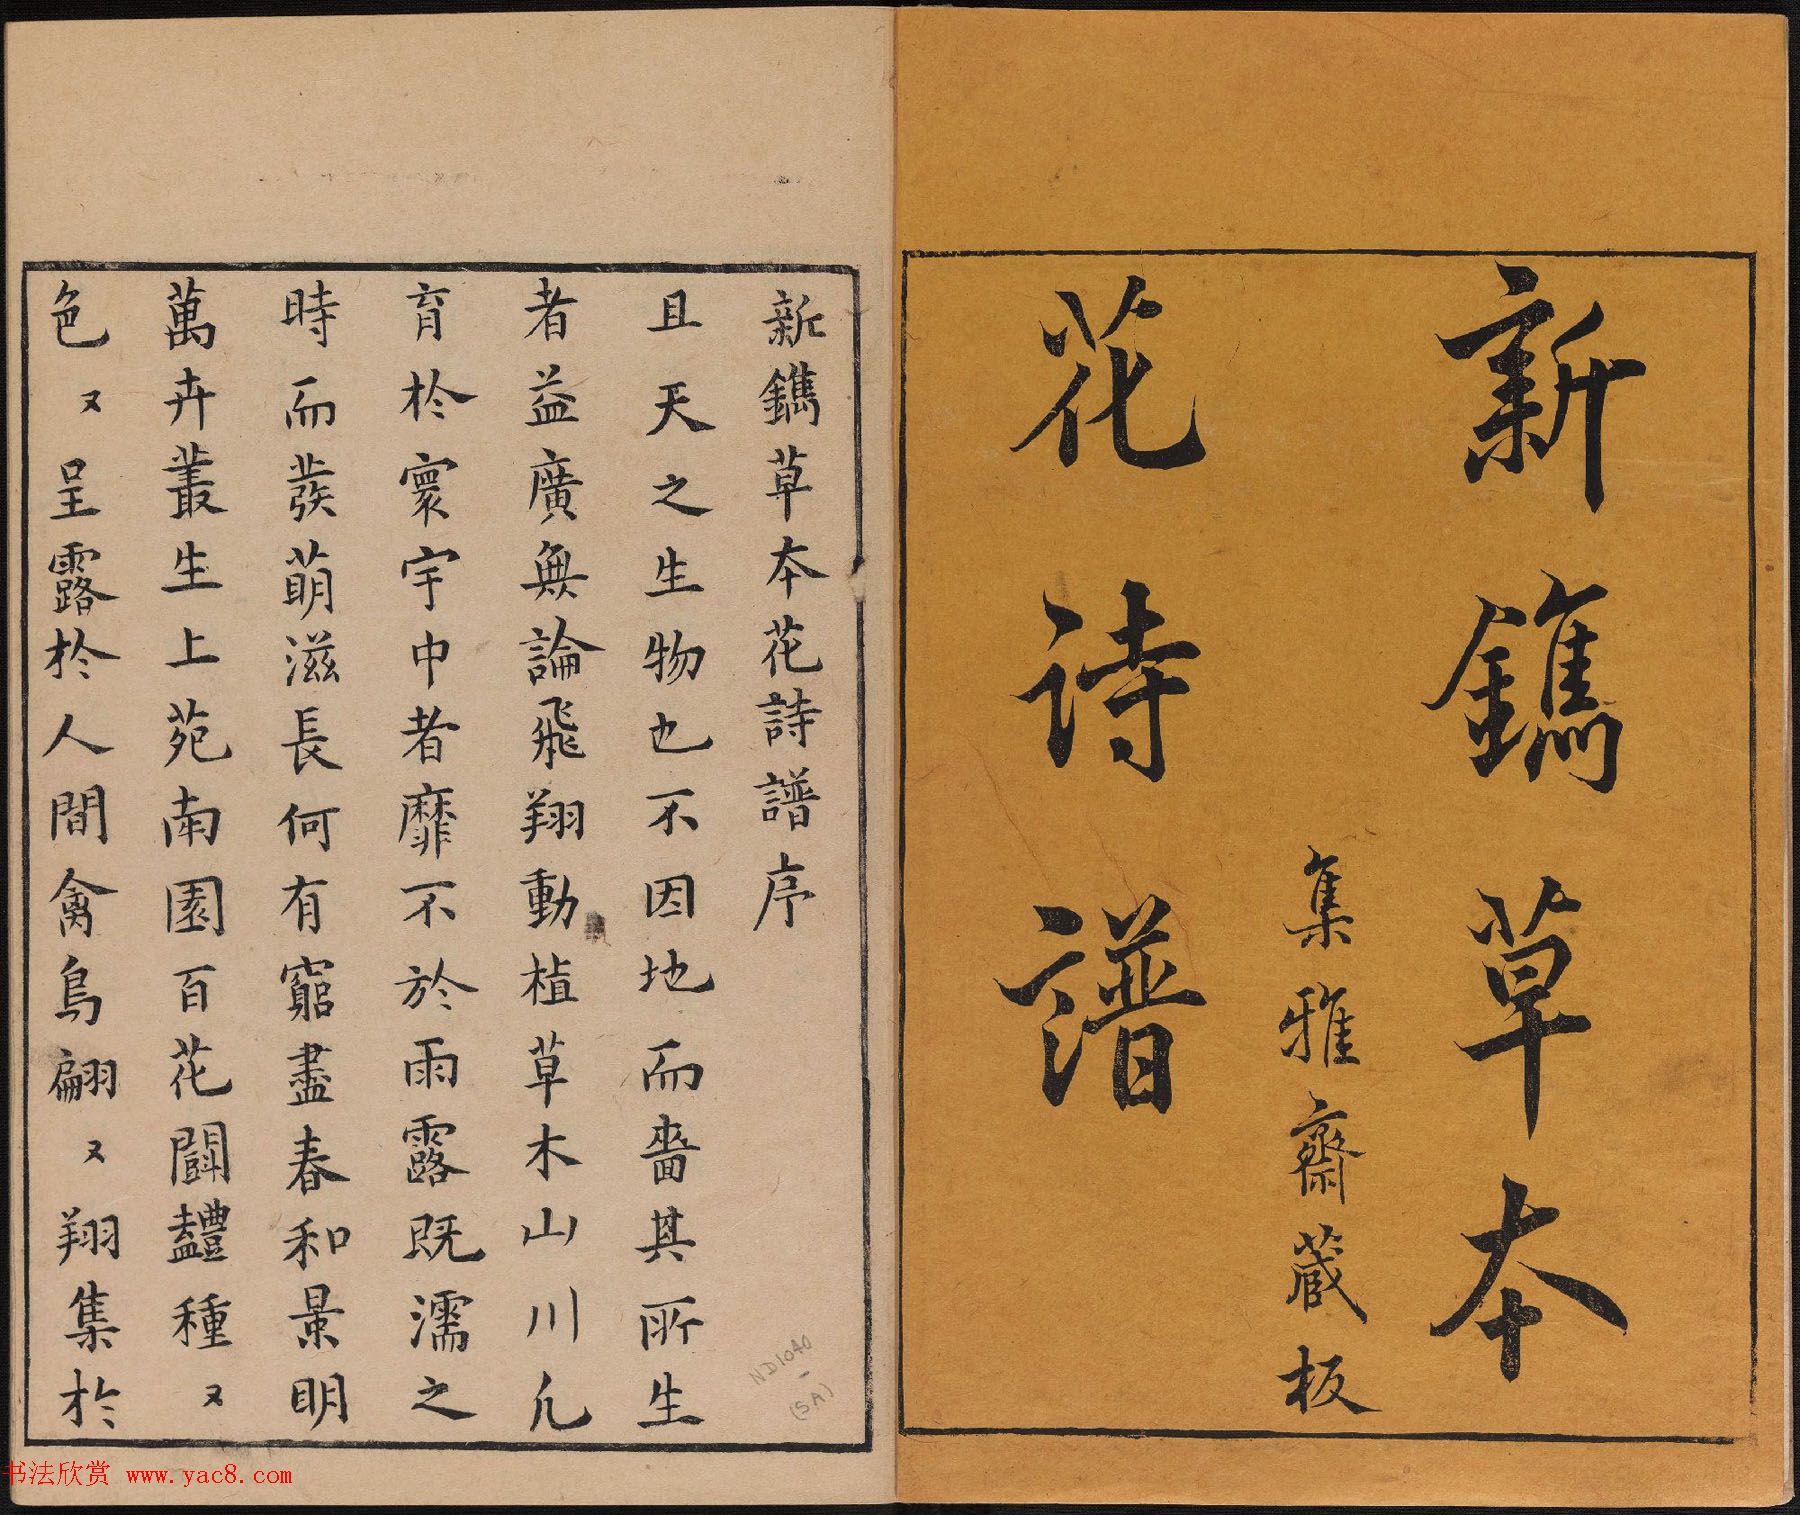 新鐫草本
集雅齋藏板
花诗谱
新鐫草本花詩譜序
且天之生物也不因地而嗇其所生
者益廣無論飛翔動植草木山川凢
育於寰宇中者靡不於雨露既濡之
時而發萌滋長何有窮盡春和景明
萬卉叢生上苑南園百花鬭豔種〻
色〻呈露於人間禽鳥翩〻翔集於
ND1040
-
(SA)
书法欣赏 www.yac8.com